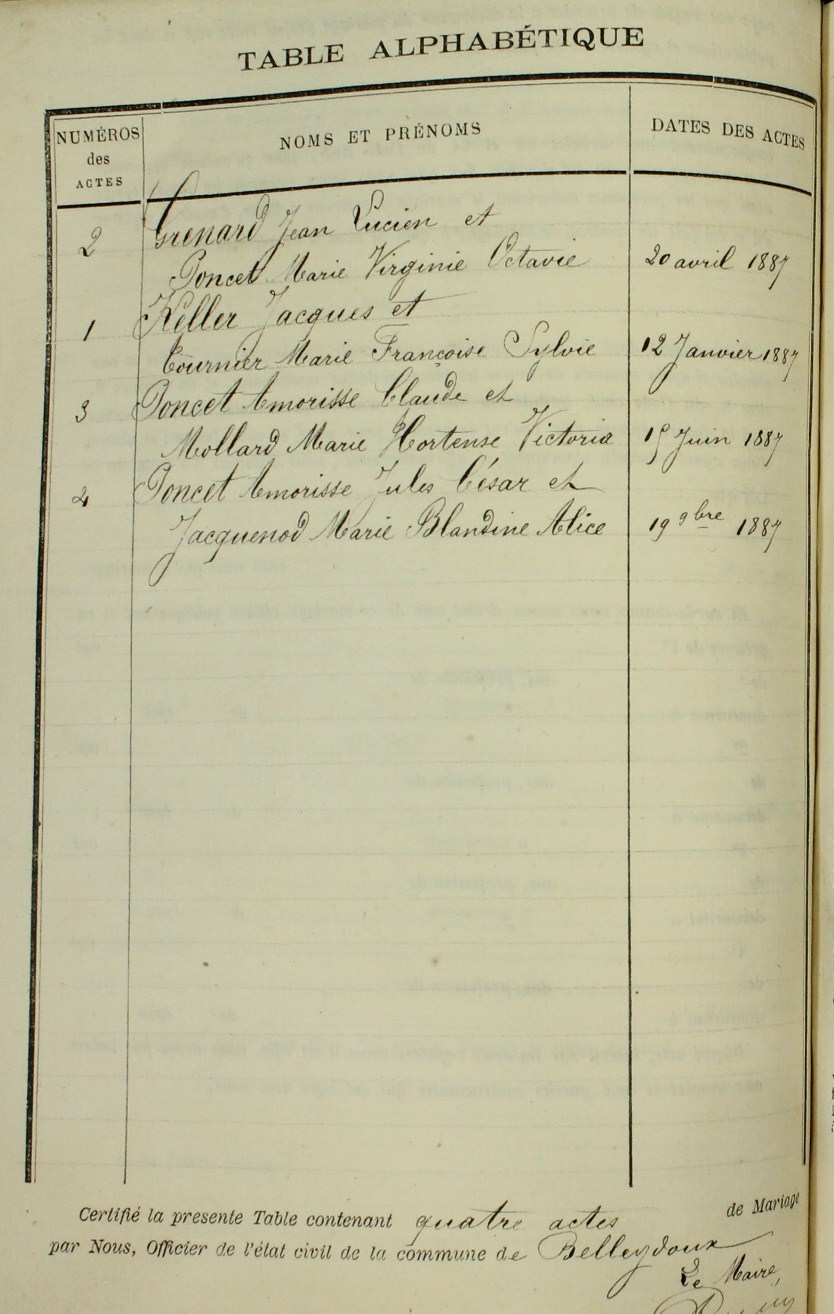 TABLE ALPHABÉTIQUE
NUMÉROS des ACTES NOMS ET PRÉNOMS DATES DES ACTES
2 Grenard Jean Lucien et
Poncet Marie Virginie Octavie 20 avril 1887
1 Keller Jacques et
Tournier Marie Françoise Sylvie 12 Janvier 1887
3 Poncet Amorisse Claude et
Mollard Marie Hortense Victoria 15 Juin 1887
4 Poncet Amorisse Jules César et
Jacquenod Marie Blandine Alice 19 9bre 1887
Certifié la presente Table contenant quatre actes de Mariage
par Nous, Officier de l'état civil de la commune de Belleydoux
Le Maire,